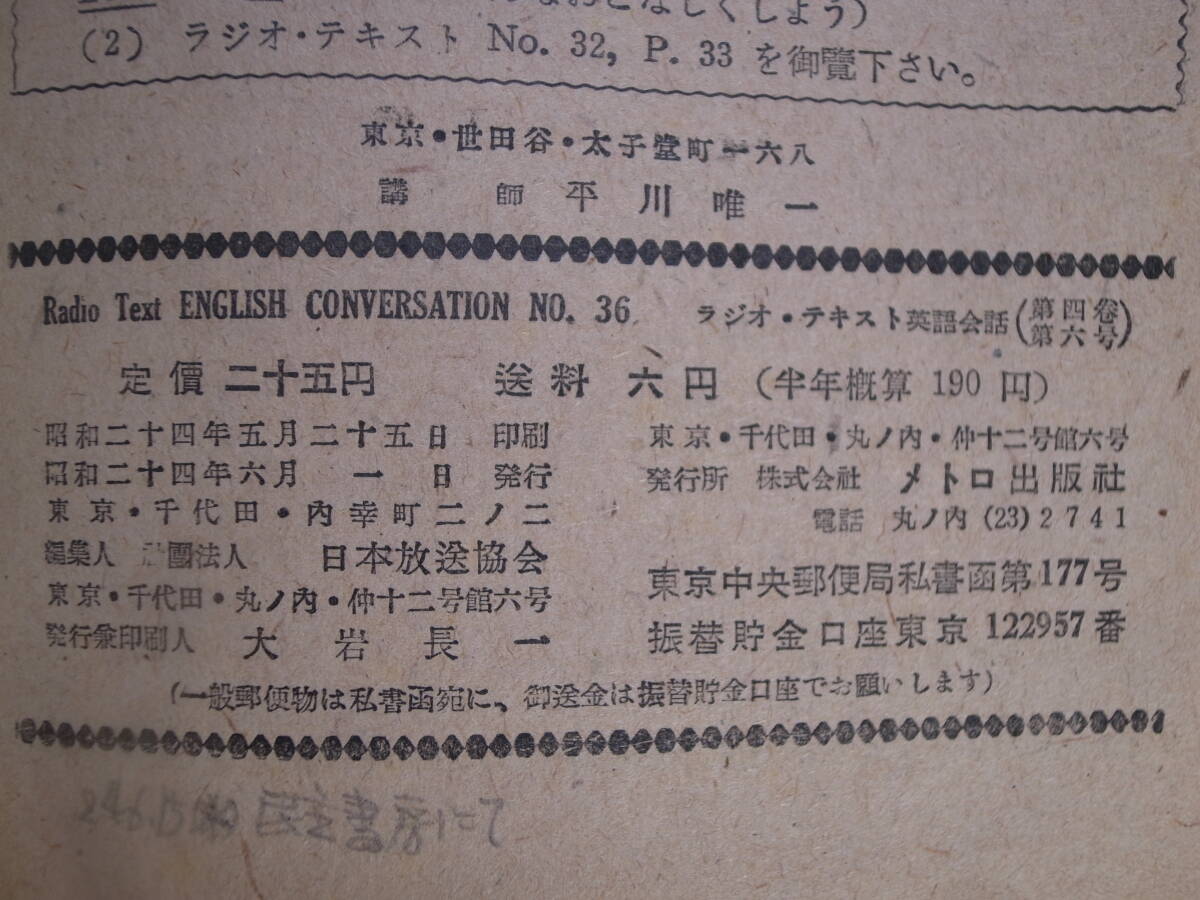 なおとなしくしよう)
(2) ラジオ・テキスト No. 32, P. 33 を御覽下さい。
東京・世田谷・太子堂町一六八
講師 平川唯一
Radio Text ENGLISH CONVERSATION NO. 36 ラジオ・テキスト英語会話(第四卷 第六号)
定價 二十五円 送料 六円 (半年概算 190 円)
昭和二十四年五月二十五日 印刷
昭和二十四年六月一日 発行
東京・千代田・内幸町二ノ二
編集人 社團法人 日本放送協会
東京・千代田・丸ノ内・仲十二号館六号
発行兼印刷人 大岩長一
東京・千代田・丸ノ内・仲十二号館六号
発行所 株式会社 メトロ出版社
電話 丸ノ内 (23) 2741
東京中央郵便局私書函第177号
振替貯金口座東京 122957番
(一般郵便物は私書函宛に、御送金は振替貯金口座でお願いします)
民主書房にて